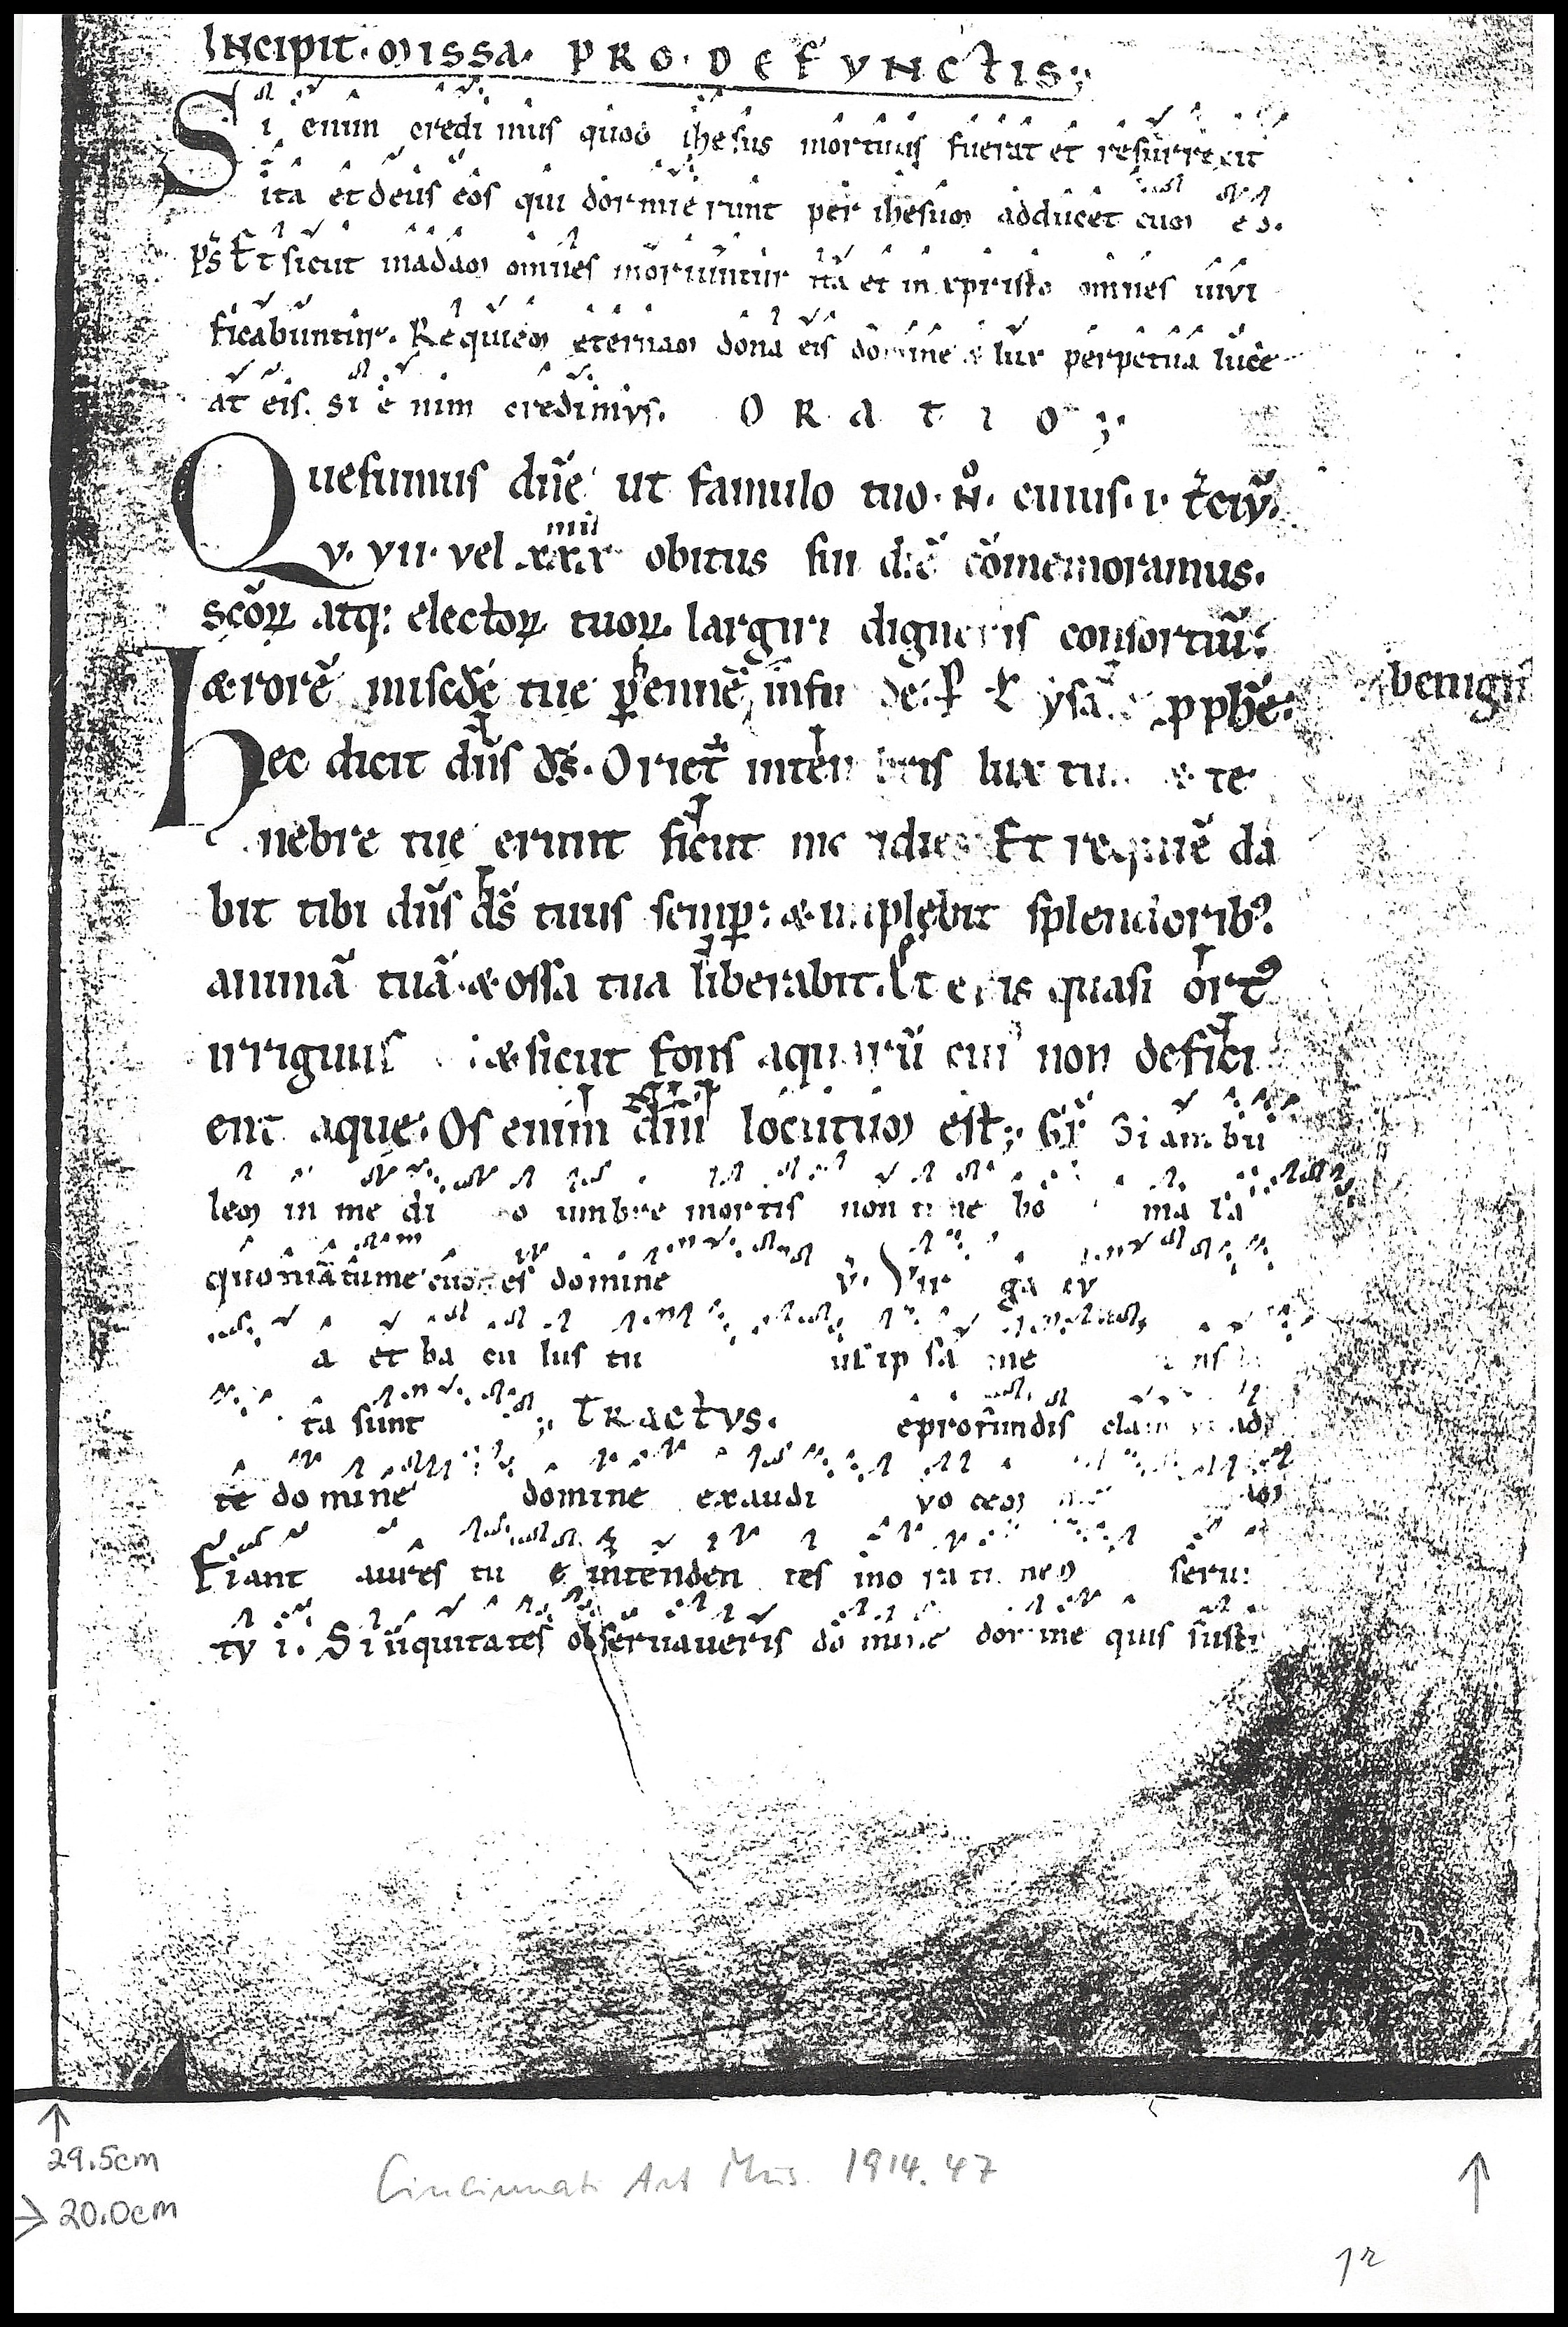 Incipit. Missa. PRO. DEFVNCTIS;
Si enim credi mus quod ihesus mortuus fuerat et resurrexit
ita et deus eos qui dormie runt per ihesum adducet cum eo.
ps̄ Et sicut inadam omnes moriuntur ita et in xpristo omnes uivi
ficabuntur. Requiem eternam dona eis domine & lux perpetua luce
at eis. Si e nim credimvs. ORATIO;
Quesumus dn̄e ut famulo tuo. N̊. cuius. i. t̄civ̄.
v. vii. vel xxx iiii obitus sui diē cōmemoramus.
scōꝝ atq; electoꝝ tuoꝝ largiri digneris consortiū.
& rorē misc̄d̄e tue ꝑennē infu de: P EL ysa ꝓphē.
benign
Hec dicit dn̄s d̄s. Oriet̄ inten bris lux tu & te
nebre tue erunt sicut me idies Et requiē da
bit tibi dn̄s d̄s tuus semꝑ: & implebit splendorib;
animā tuā. & ossa tua liberabit. Et eris quasi ort9
irriguus & sicut fons aquarū cui9 non defici
ent aque. Os enim dn̄i locutum est; Gr̄ Si am bu
lem in me di o umbre mortis non ti me bo ma la
quoniā tu me cum es domine v̄. Vir ga tv
a et ba cu lus tu us ip sa me
ta sunt ; TRACTVS. e profundis clam ad
te domine domine exaudi vo cem
Fiant aures tu e intenden tes ino ra ti nem seru
tv i. Si iniquitates observaveris do mine domine quis susti
29.5cm
20.0cm
Cincinnati Art Mus. 1914.47
1r